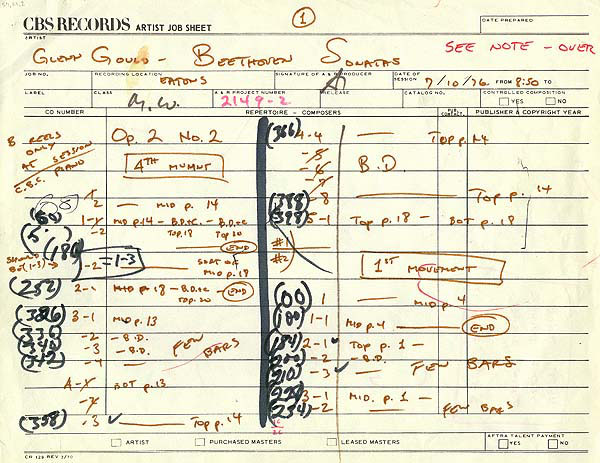 ①
CBS RECORDS ARTIST JOB SHEET
DATE PREPARED
ARTIST
GLENN GOULD - BEETHOVEN SONATAS
SEE NOTE - OVER
JOB NO. RECORDING LOCATION SIGNATURE OF A & R PRODUCER DATE OF SESSION
EATONS 7/10/76 FROM 8:50 TO
LABEL CLASS A & R PROJECT NUMBER RELEASE CATALOG NO. CONTROLLED COMPOSITION
M.W. 2149-2 YES NO
CO NUMBER REPERTOIRE - COMPOSERS PUB. CONTACT. PUBLISHER & COPYRIGHT YEAR
8 REELS ONLY AT SESSION
C.B.C. PIANO
OP. 2 NO. 2
4TH MVMNT
2 — MID P. 14
1-X MID P.14 - B.D.+C - B.D.+C
-2 TOP.18 TOP 20
END
SHOULD BE (1-3) → -2 = 1-3 SORT OF MID P.18
(252) 2-1 MID P.18 - B.D.+C - END
TOP. 20
(326) 3-1 MID P.13
-2 - B.D.
-3 - B.D. FEW BARS
-4 —
4-X BOT P.13
-X
(358) -3 ✓ TOP P.14
(366) 4-4 — TOP P.14
-5
-6 B.D.
-7
(388) -8 — TOP P. 14
(398) 5-1 TOP P.18 - BOT P.18
#1
#2
1ST MOVEMENT
(00) 1 — MID P.4
(180) 1-1 MID P.4 — END
(184) 2-1 ✓ TOP P.1 —
(200) -2 - B.D.
(210) -3 ✓ — FEW BARS
3-1 MID. P.1 —
(234) -2 — FEW BARS
ARTIST PURCHASED MASTERS LEASED MASTERS
AFTRA TALENT PAYMENT
YES NO
CR 129 REV 3/70